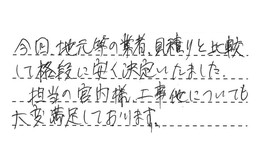 今回、地元等の業者、見積りと比較
して格段に安く決定いたしました。
担当の宮内様、工事他についても
大変満足しております。